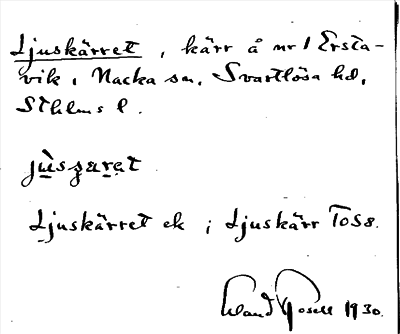 Ljuskärret, kärr å nr 1 Ersta-
vik i Nacka sn, Svartlösa hd,
Sthlms l.
jùsʒarat
Ljuskärret ek i Ljuskärr TOS8.
Erland Rosell 1930.